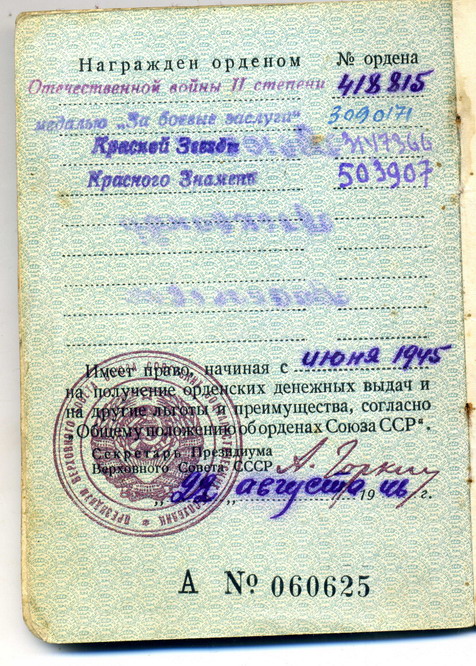 Награжден орденом № ордена
Отечественной войны II степени 418815
медалью „За боевые заслуги“ 3090171
Красной Звезды
Красного Знамени 503907
Имеет право, начиная с июня 1945
на получение орденских денежных выдач и
на другие льготы и преимущества, согласно
„Общему положению об орденах Союза ССР“.
Секретарь Президиума
Верховного Совета СССР А. Горкин
„22„ августа 19 г.
А № 060625